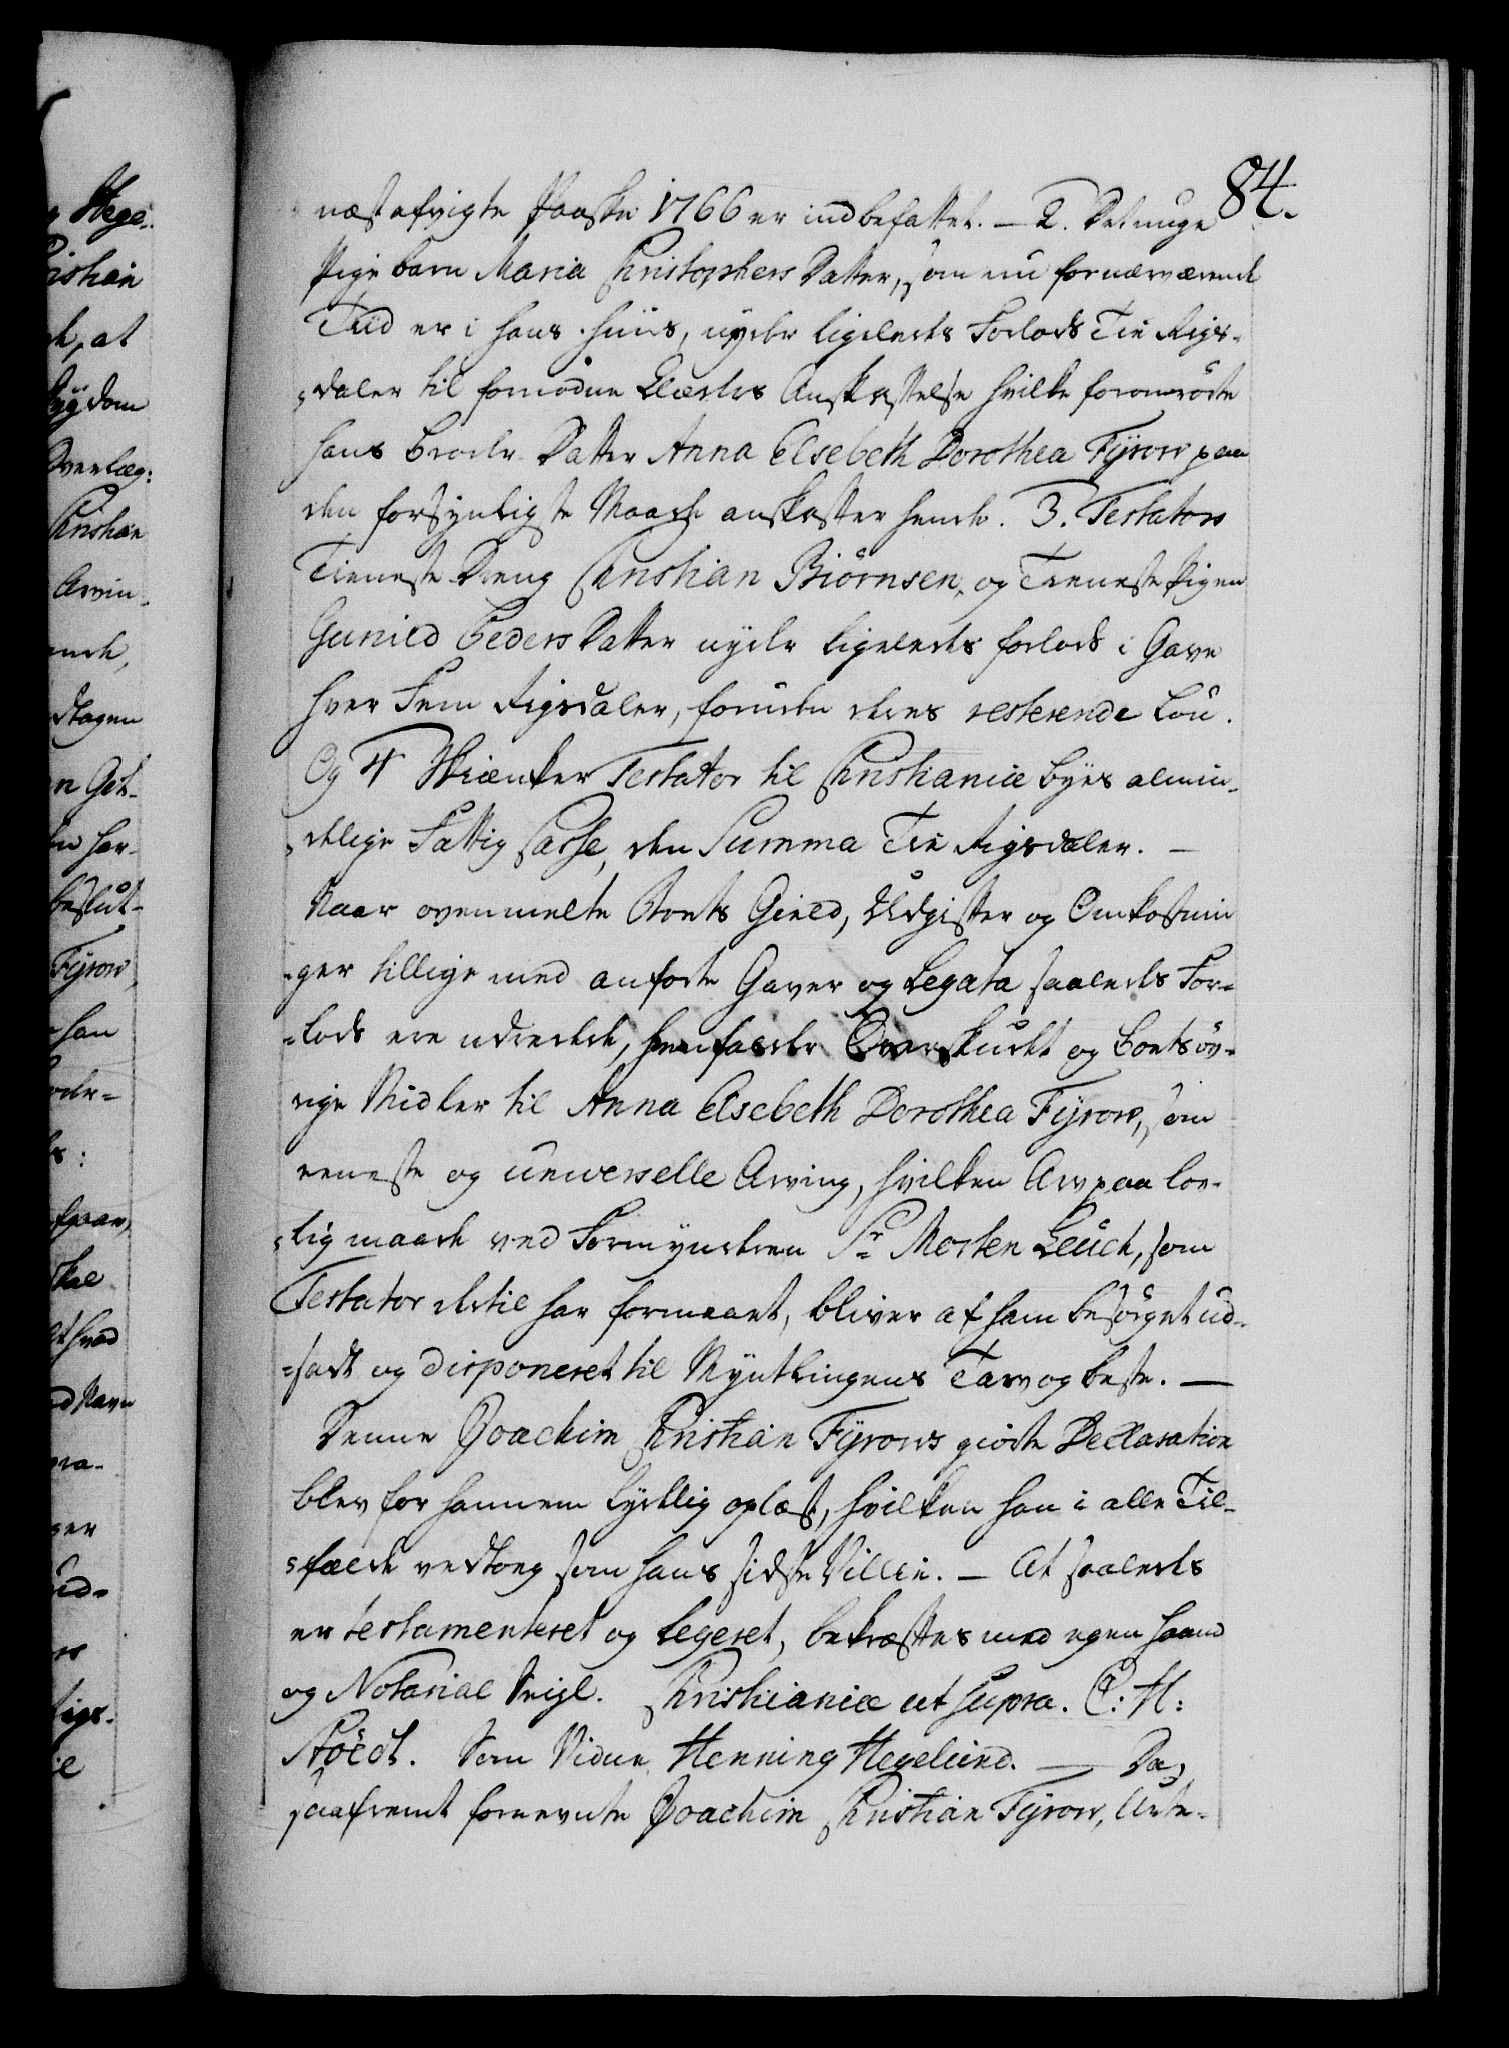 84.
næstafvigte Paaske 1766 er indbefattet. — 2. Det unge
Pige barn Maria Christophers Datter, som nu fornærværende
Tiid er i hans Huus, nyder ligeledes Forlods Tie Rigs-
daler til fornødne Klæders Anskaffelse hvilke foromrörte
hans Broder Datter Anna Elsebeth Dorothea Fÿrow paa
den forsynligste Maade anskaffer hende. 3. Testators
Tieneste Dreng Christian Biörnsen, og Tieneste Pigen
Gunild Peders Datter nyder ligeledes forlods i Gave
hver Fem Rigsdaler, foruden deres resterende Lön.
Og 4 Skiænker Testator til Christianiæ Byes almin-
delige Fattig Casse, den Summa Tie Rigsdaler. —
Naar ovenmelte Boets Gield, Udgifter og Omkostnin
-ger tillige med anforte Gaver og Legata saaledes For-
-lods ere udredede, henfalder Overskudet og Boets öv-
rige Midler til Anna Elsebeth Dorothea Fÿrow, som
eeneste og universelle Arving, hvilken Arv paa lov-
lig maade ved Formynderen Sr Morten Leuch, som
Testator dertil har formaaet, bliver af ham besörget ud-
-sadt og disponeret til Myntlingens Tarv og beste. —
Denne Joachim Christian Fÿrows giorte Declaration
blev for hannem tydelig oplæst, hvilken han i alle Til-
fælde vedtog som hans sidste Villie. — At saaledes
er testamenteret og legeret, bekræftes med egen Haand
og Notarial Seigl. Christianiæ ut supra. C: H:
Stöcdt. Som Vidne Henning Hegelund. — Da,
saafremt fornevnte Joachim Christian Fÿrow, Ante-